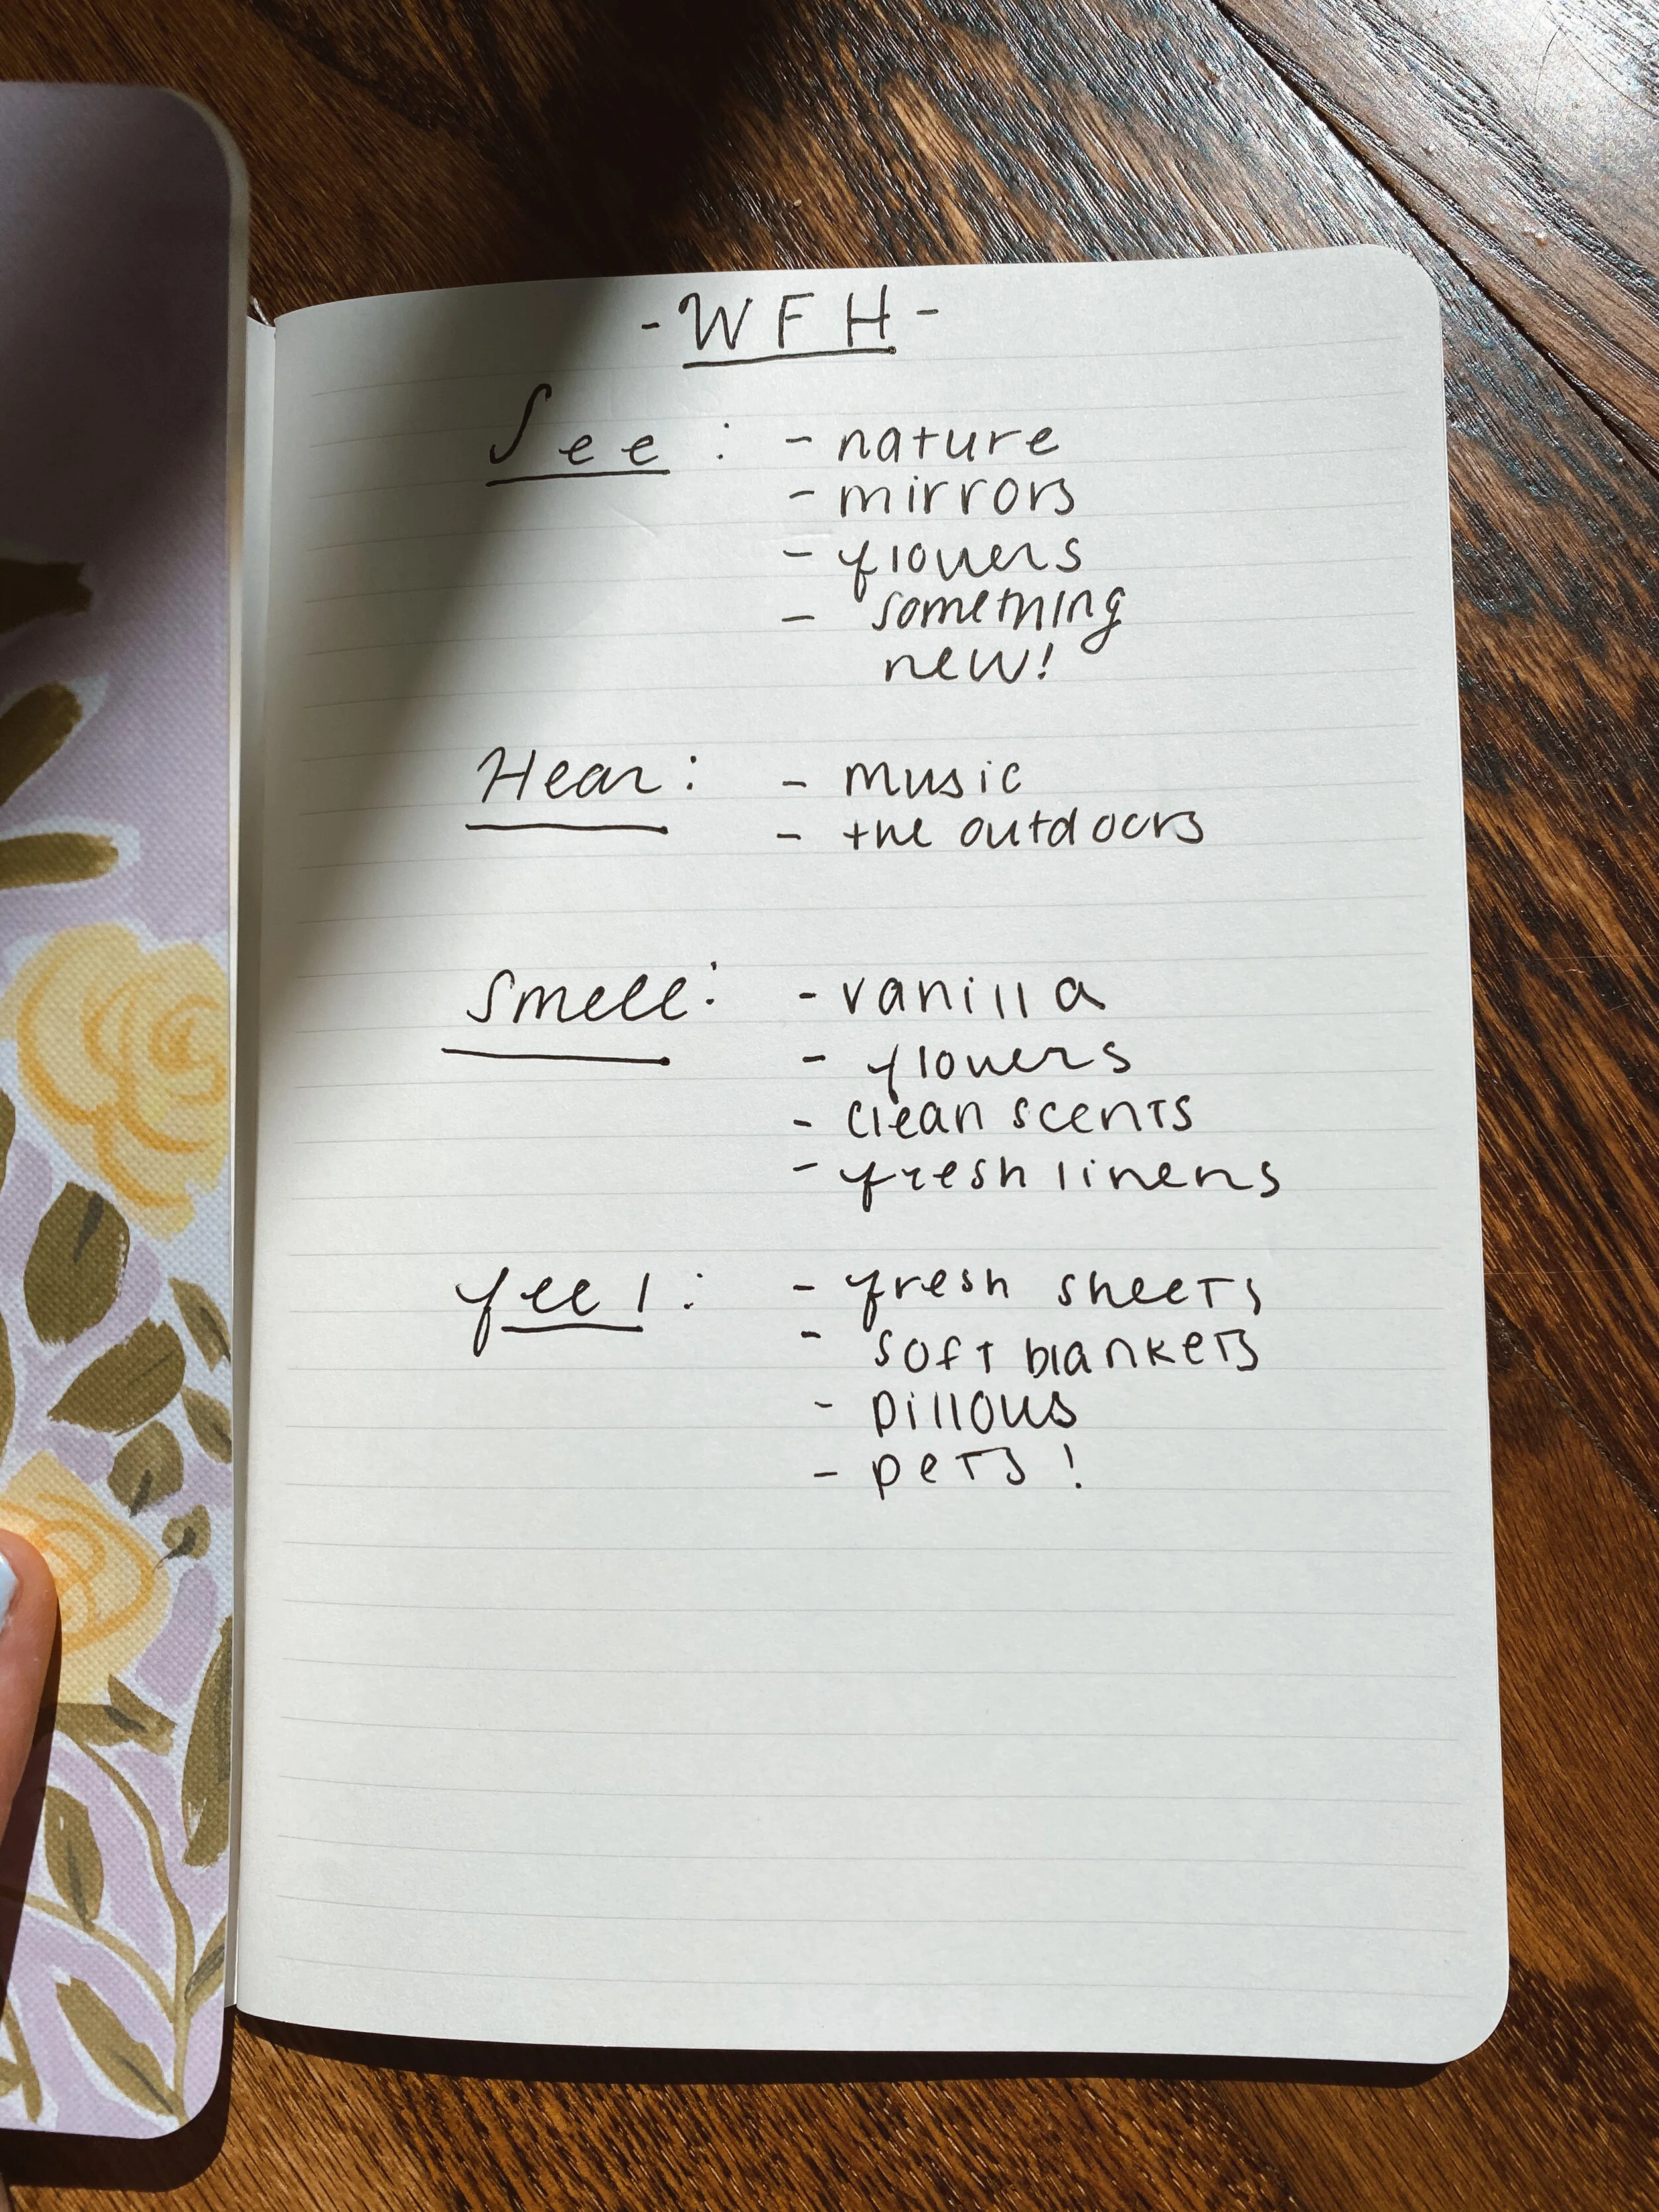 - W F H -
See : - nature
- mirrors
- flowers
- something
new!
Hear : - music
- the outdoors
Smell : - vanilla
- flowers
- clean scents
- fresh linens
feel : - fresh sheets
- soft blankets
- pillows
- pets !